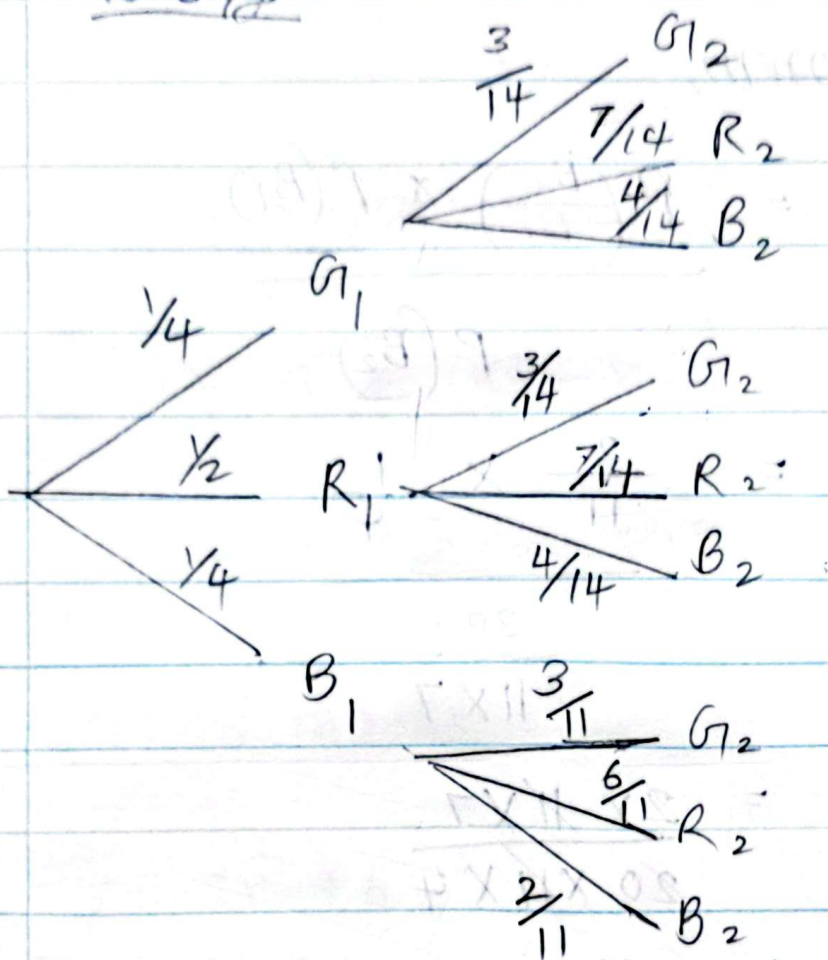 3/14 G2
7/14 R2
4/14 B2
1/4 G1
3/14 G2
1/2 R1 7/14 R2
4/14 B2
1/4 B1
3/11 G2
6/11 R2
2/11 B2